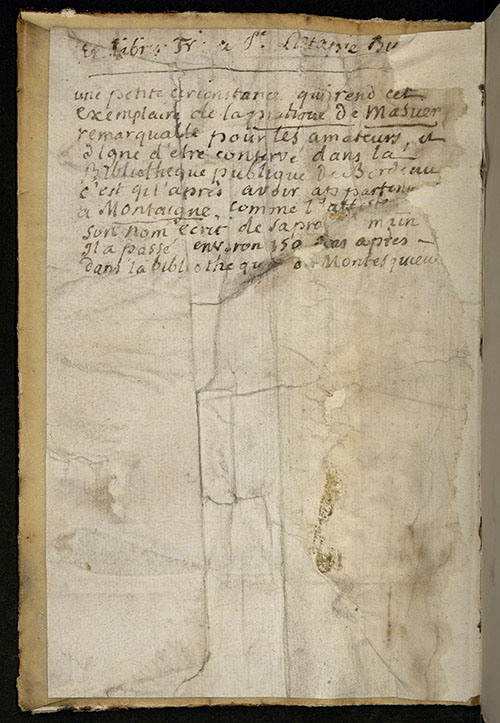 Ex libris
une petite circonstance qui rend cet
exemplaire de la pratique de Masuer
remarquable pour les amateurs, et
digne d'etre conservé dans la
Bibliotheque publique de Bordeau
c'est qu'après avoir appartenu
a Montaigne, comme l'atteste
son nom ecrit de sa pro main
Il a passé environ 150 ans après
dans la bibliotheque de Montesquieu